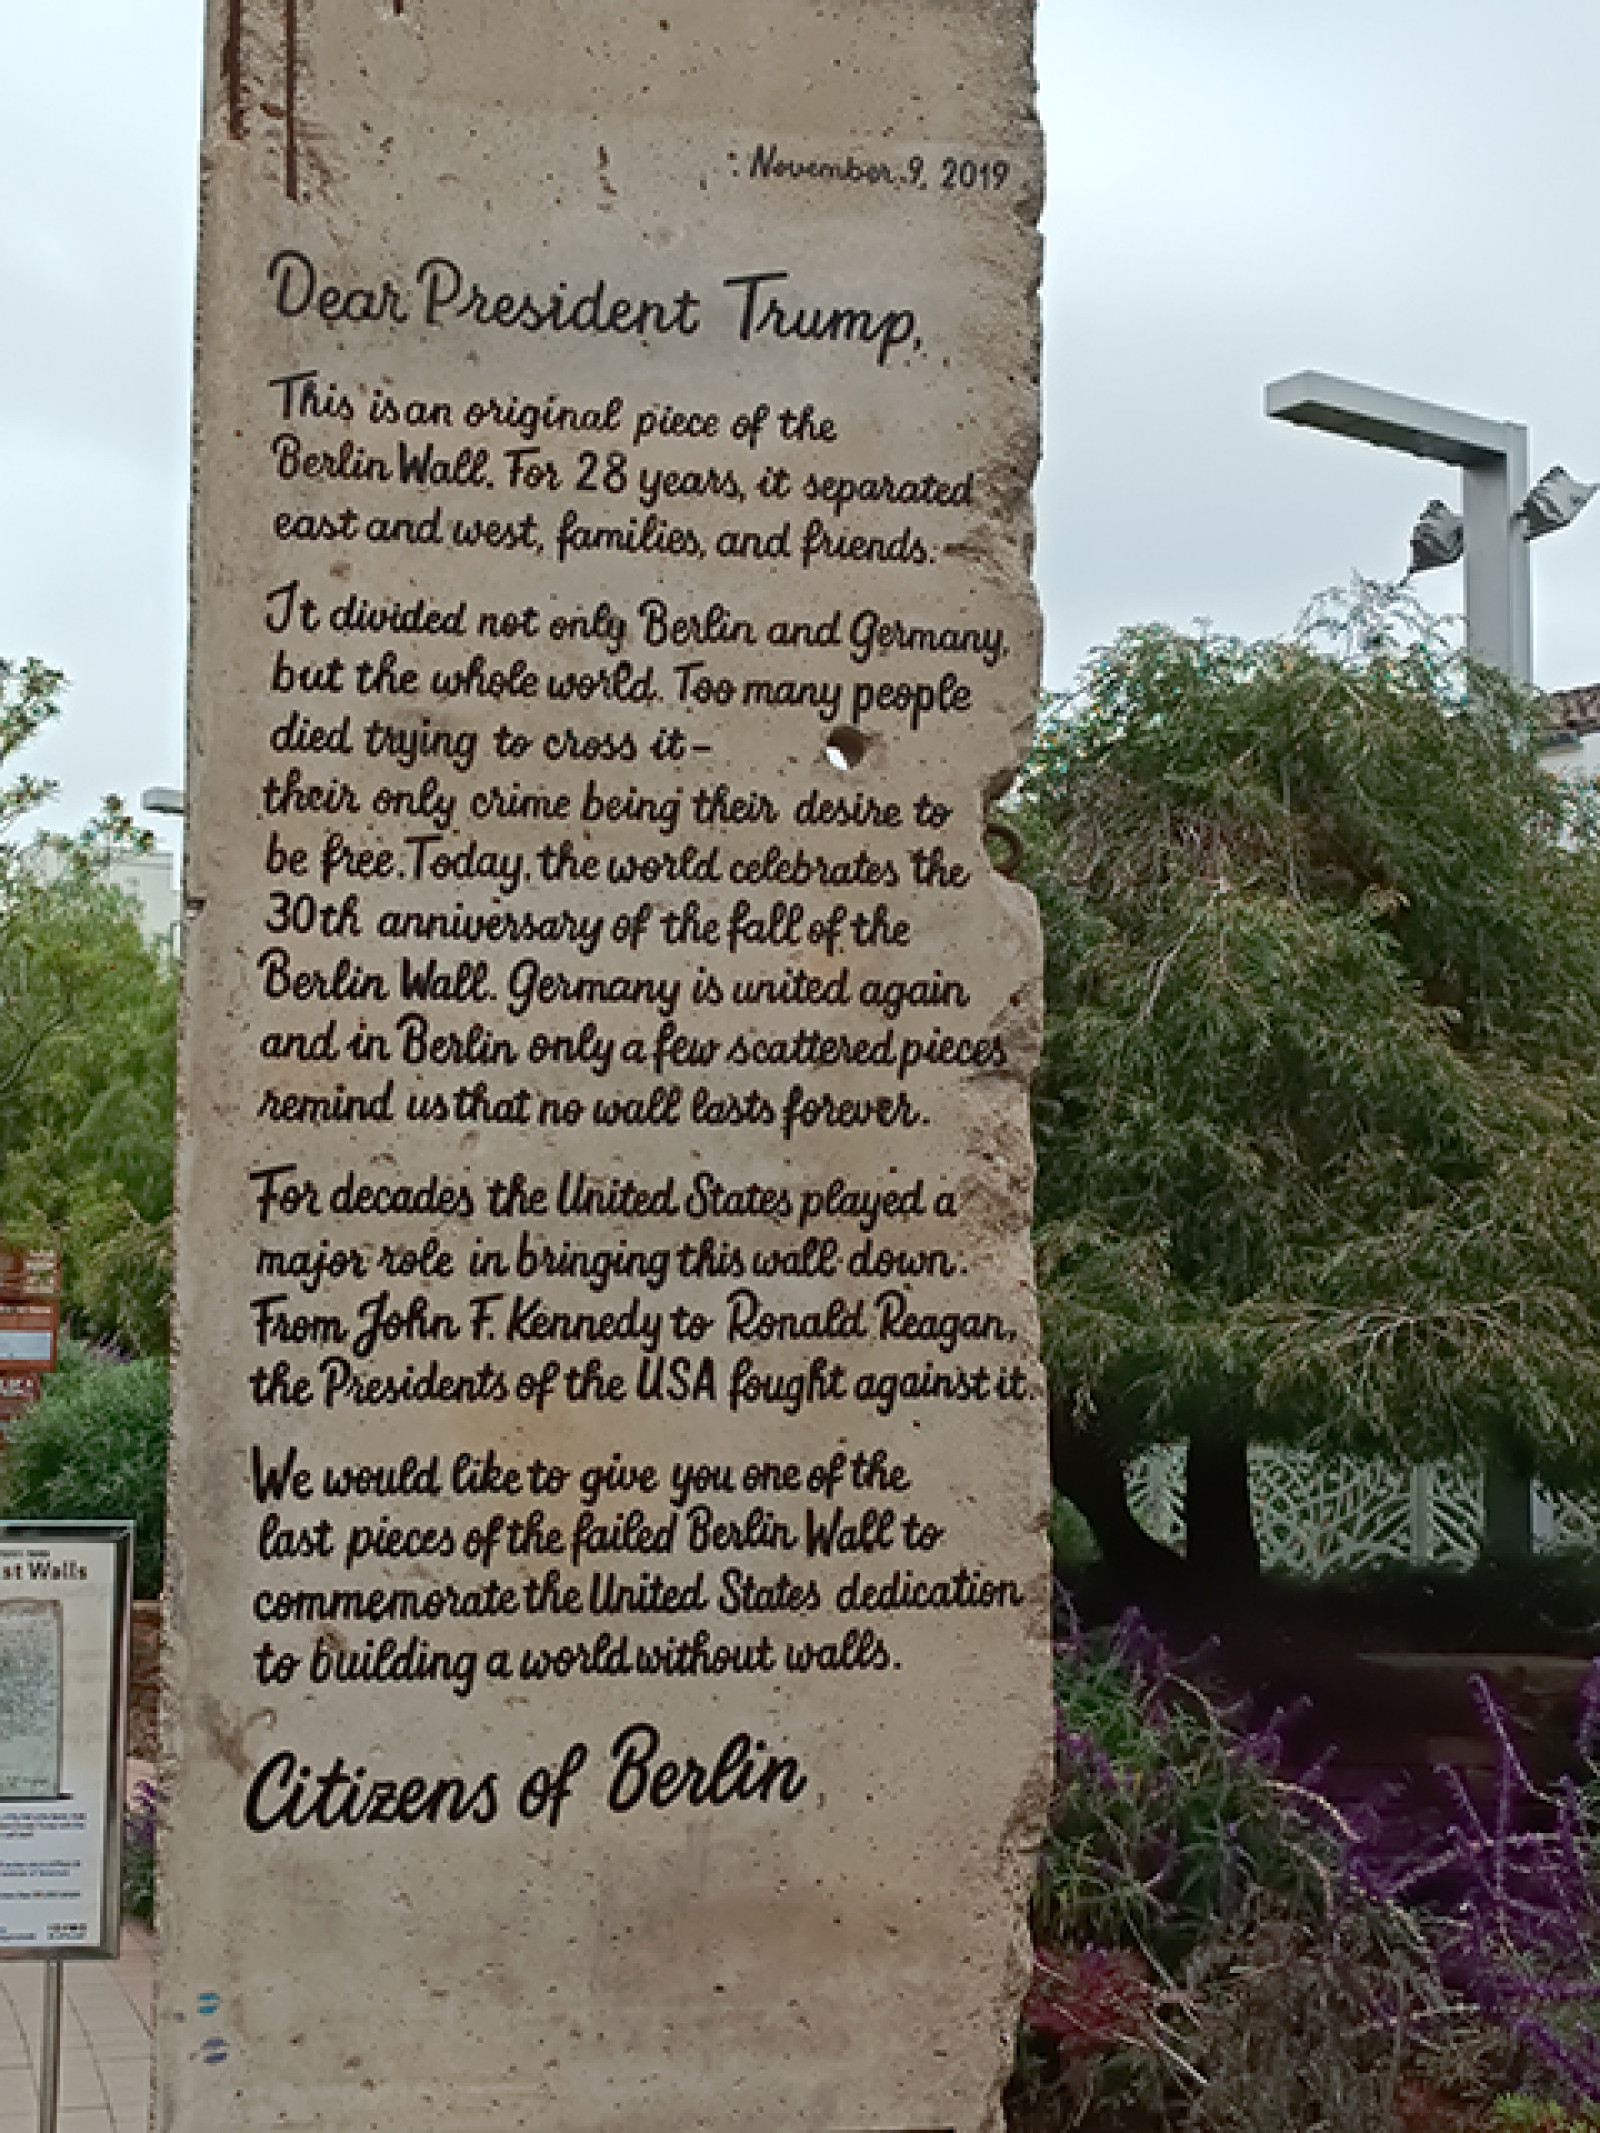 November 9, 2019
Dear President Trump,
This is an original piece of the
Berlin Wall. For 28 years, it separated
east and west, families, and friends.
It divided not only Berlin and Germany,
but the whole world. Too many people
died trying to cross it –
their only crime being their desire to
be free. Today, the world celebrates the
30th anniversary of the fall of the
Berlin Wall. Germany is united again
and in Berlin only a few scattered pieces
remind us that no wall lasts forever.
For decades the United States played a
major role in bringing this wall down.
From John F. Kennedy to Ronald Reagan,
the Presidents of the USA fought against it.
We would like to give you one of the
last pieces of the failed Berlin Wall to
commemorate the United States dedication
to building a world without walls.
Citizens of Berlin
st Walls